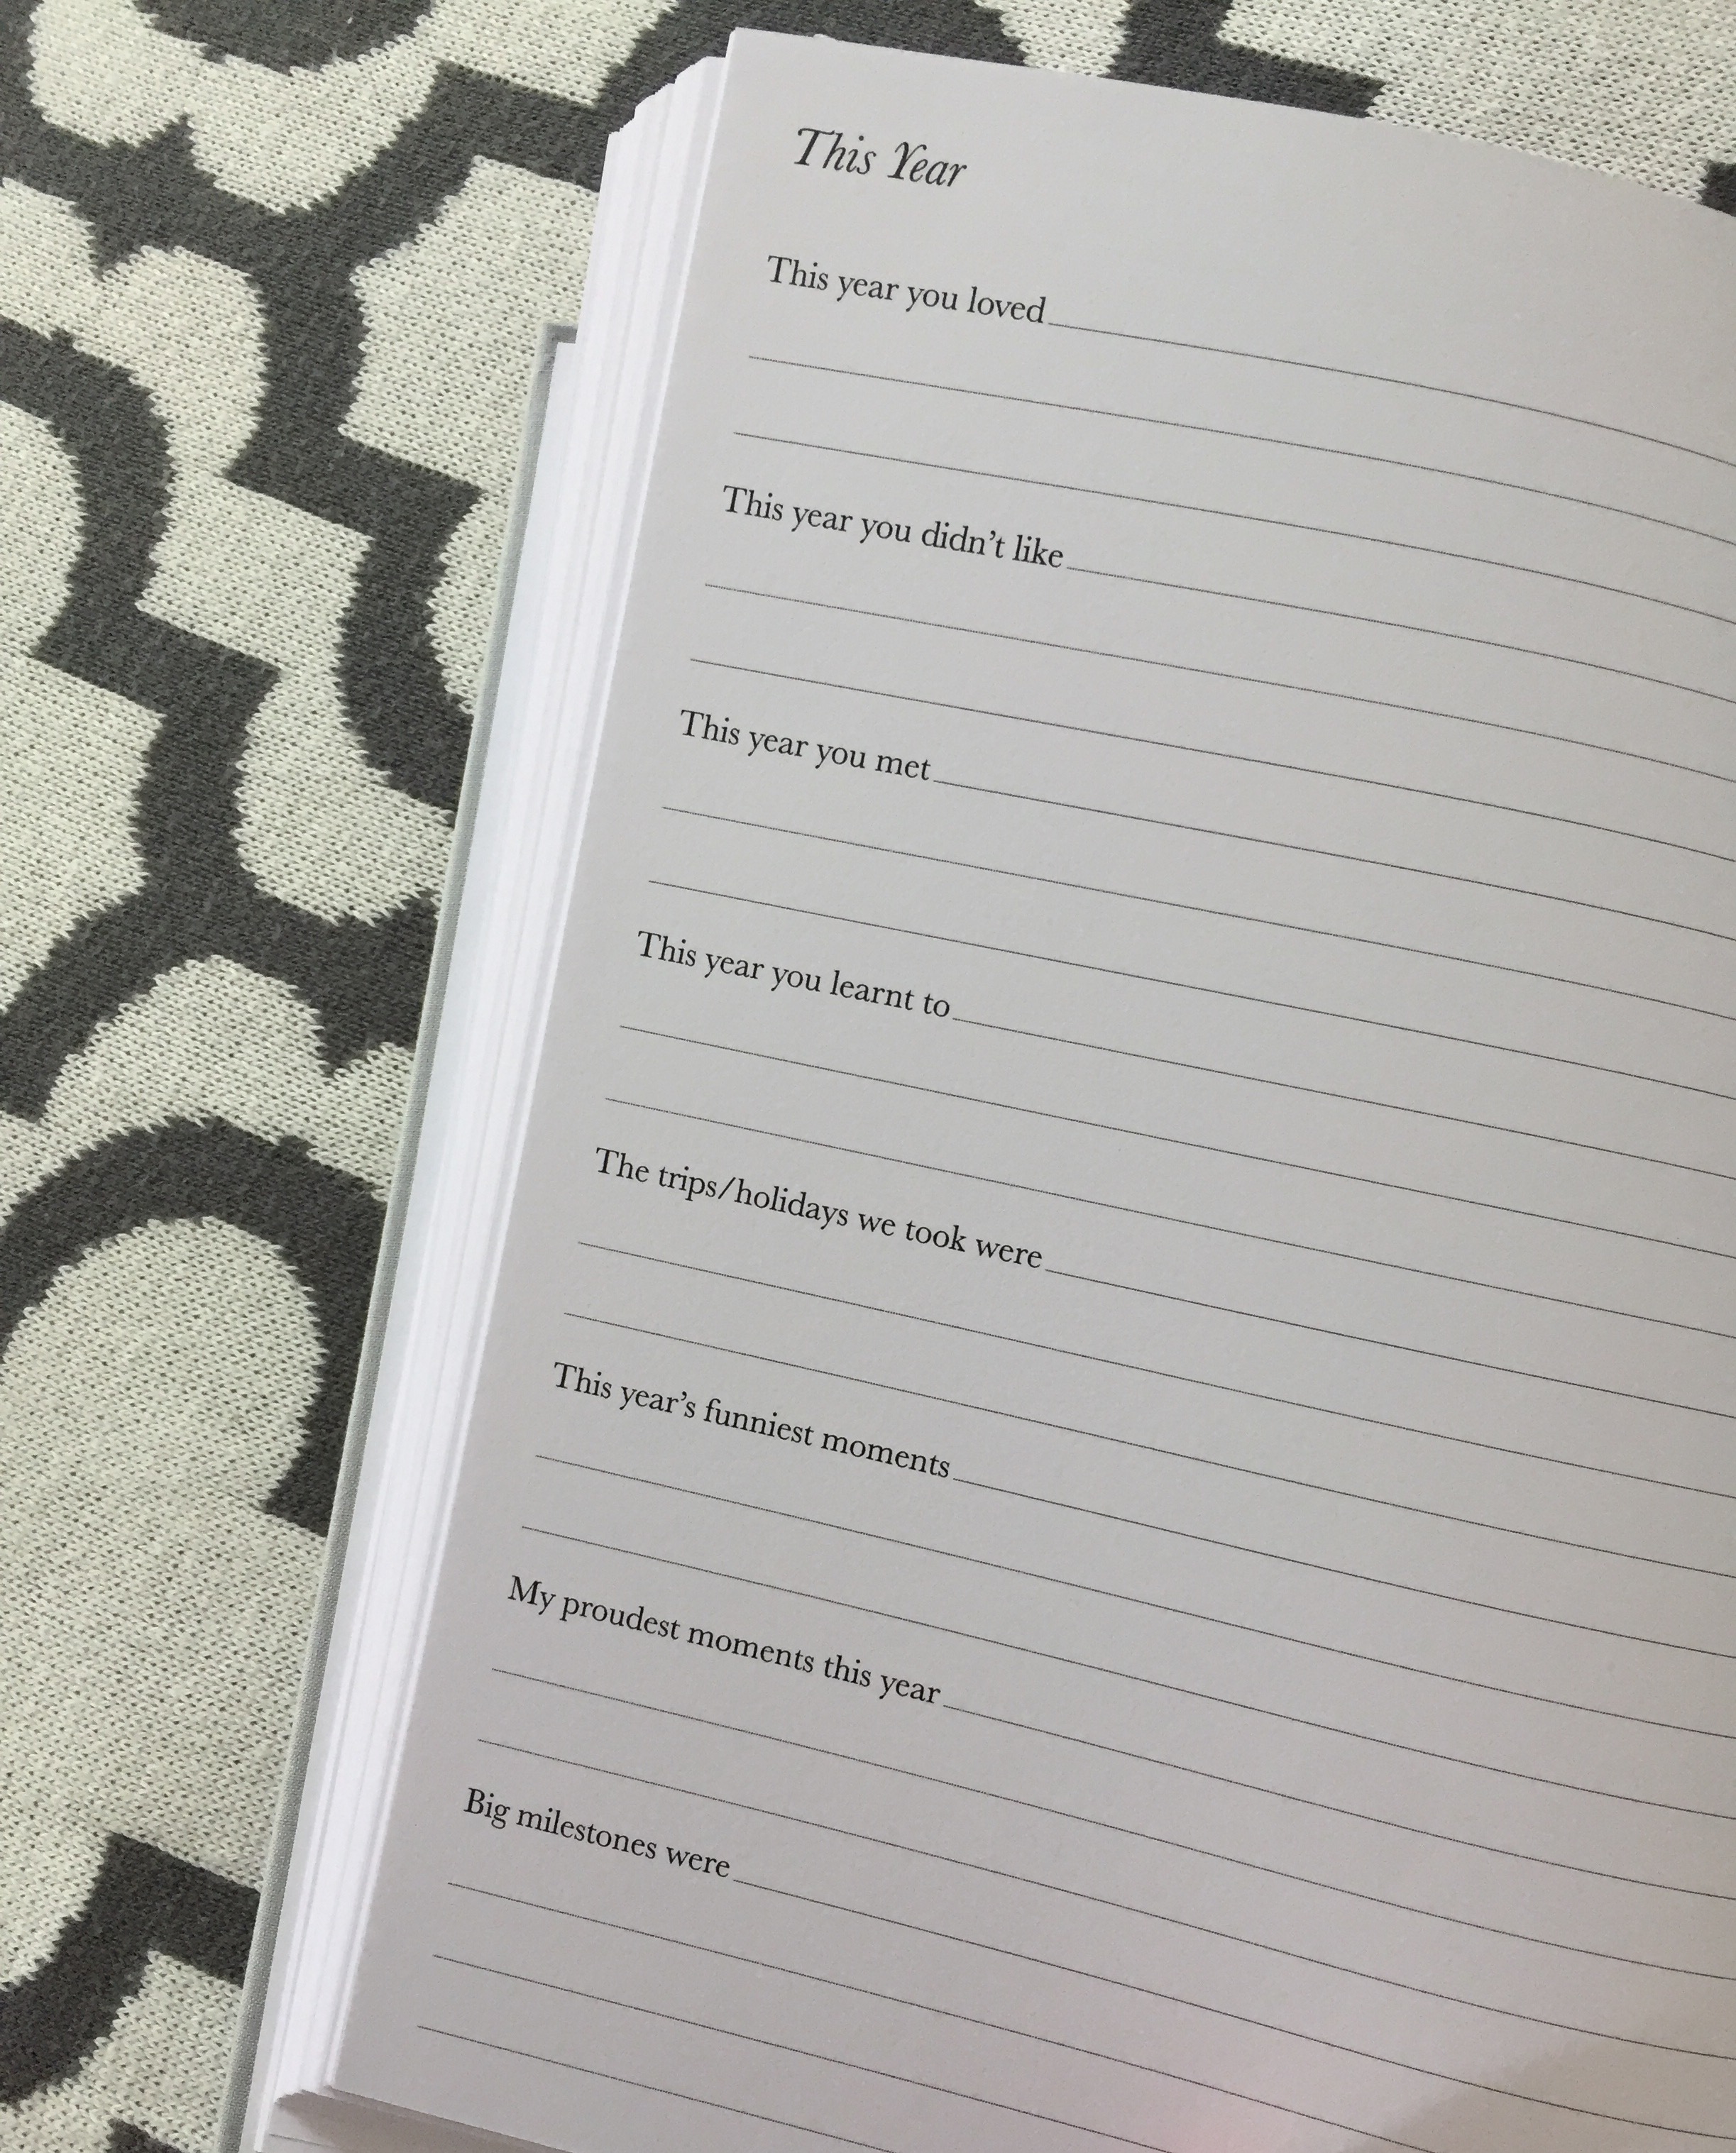 This Year
This year you loved
This year you didn't like
This year you met
This year you learnt to
The trips/holidays we took were
This year's funniest moments
My proudest moments this year
Big milestones were